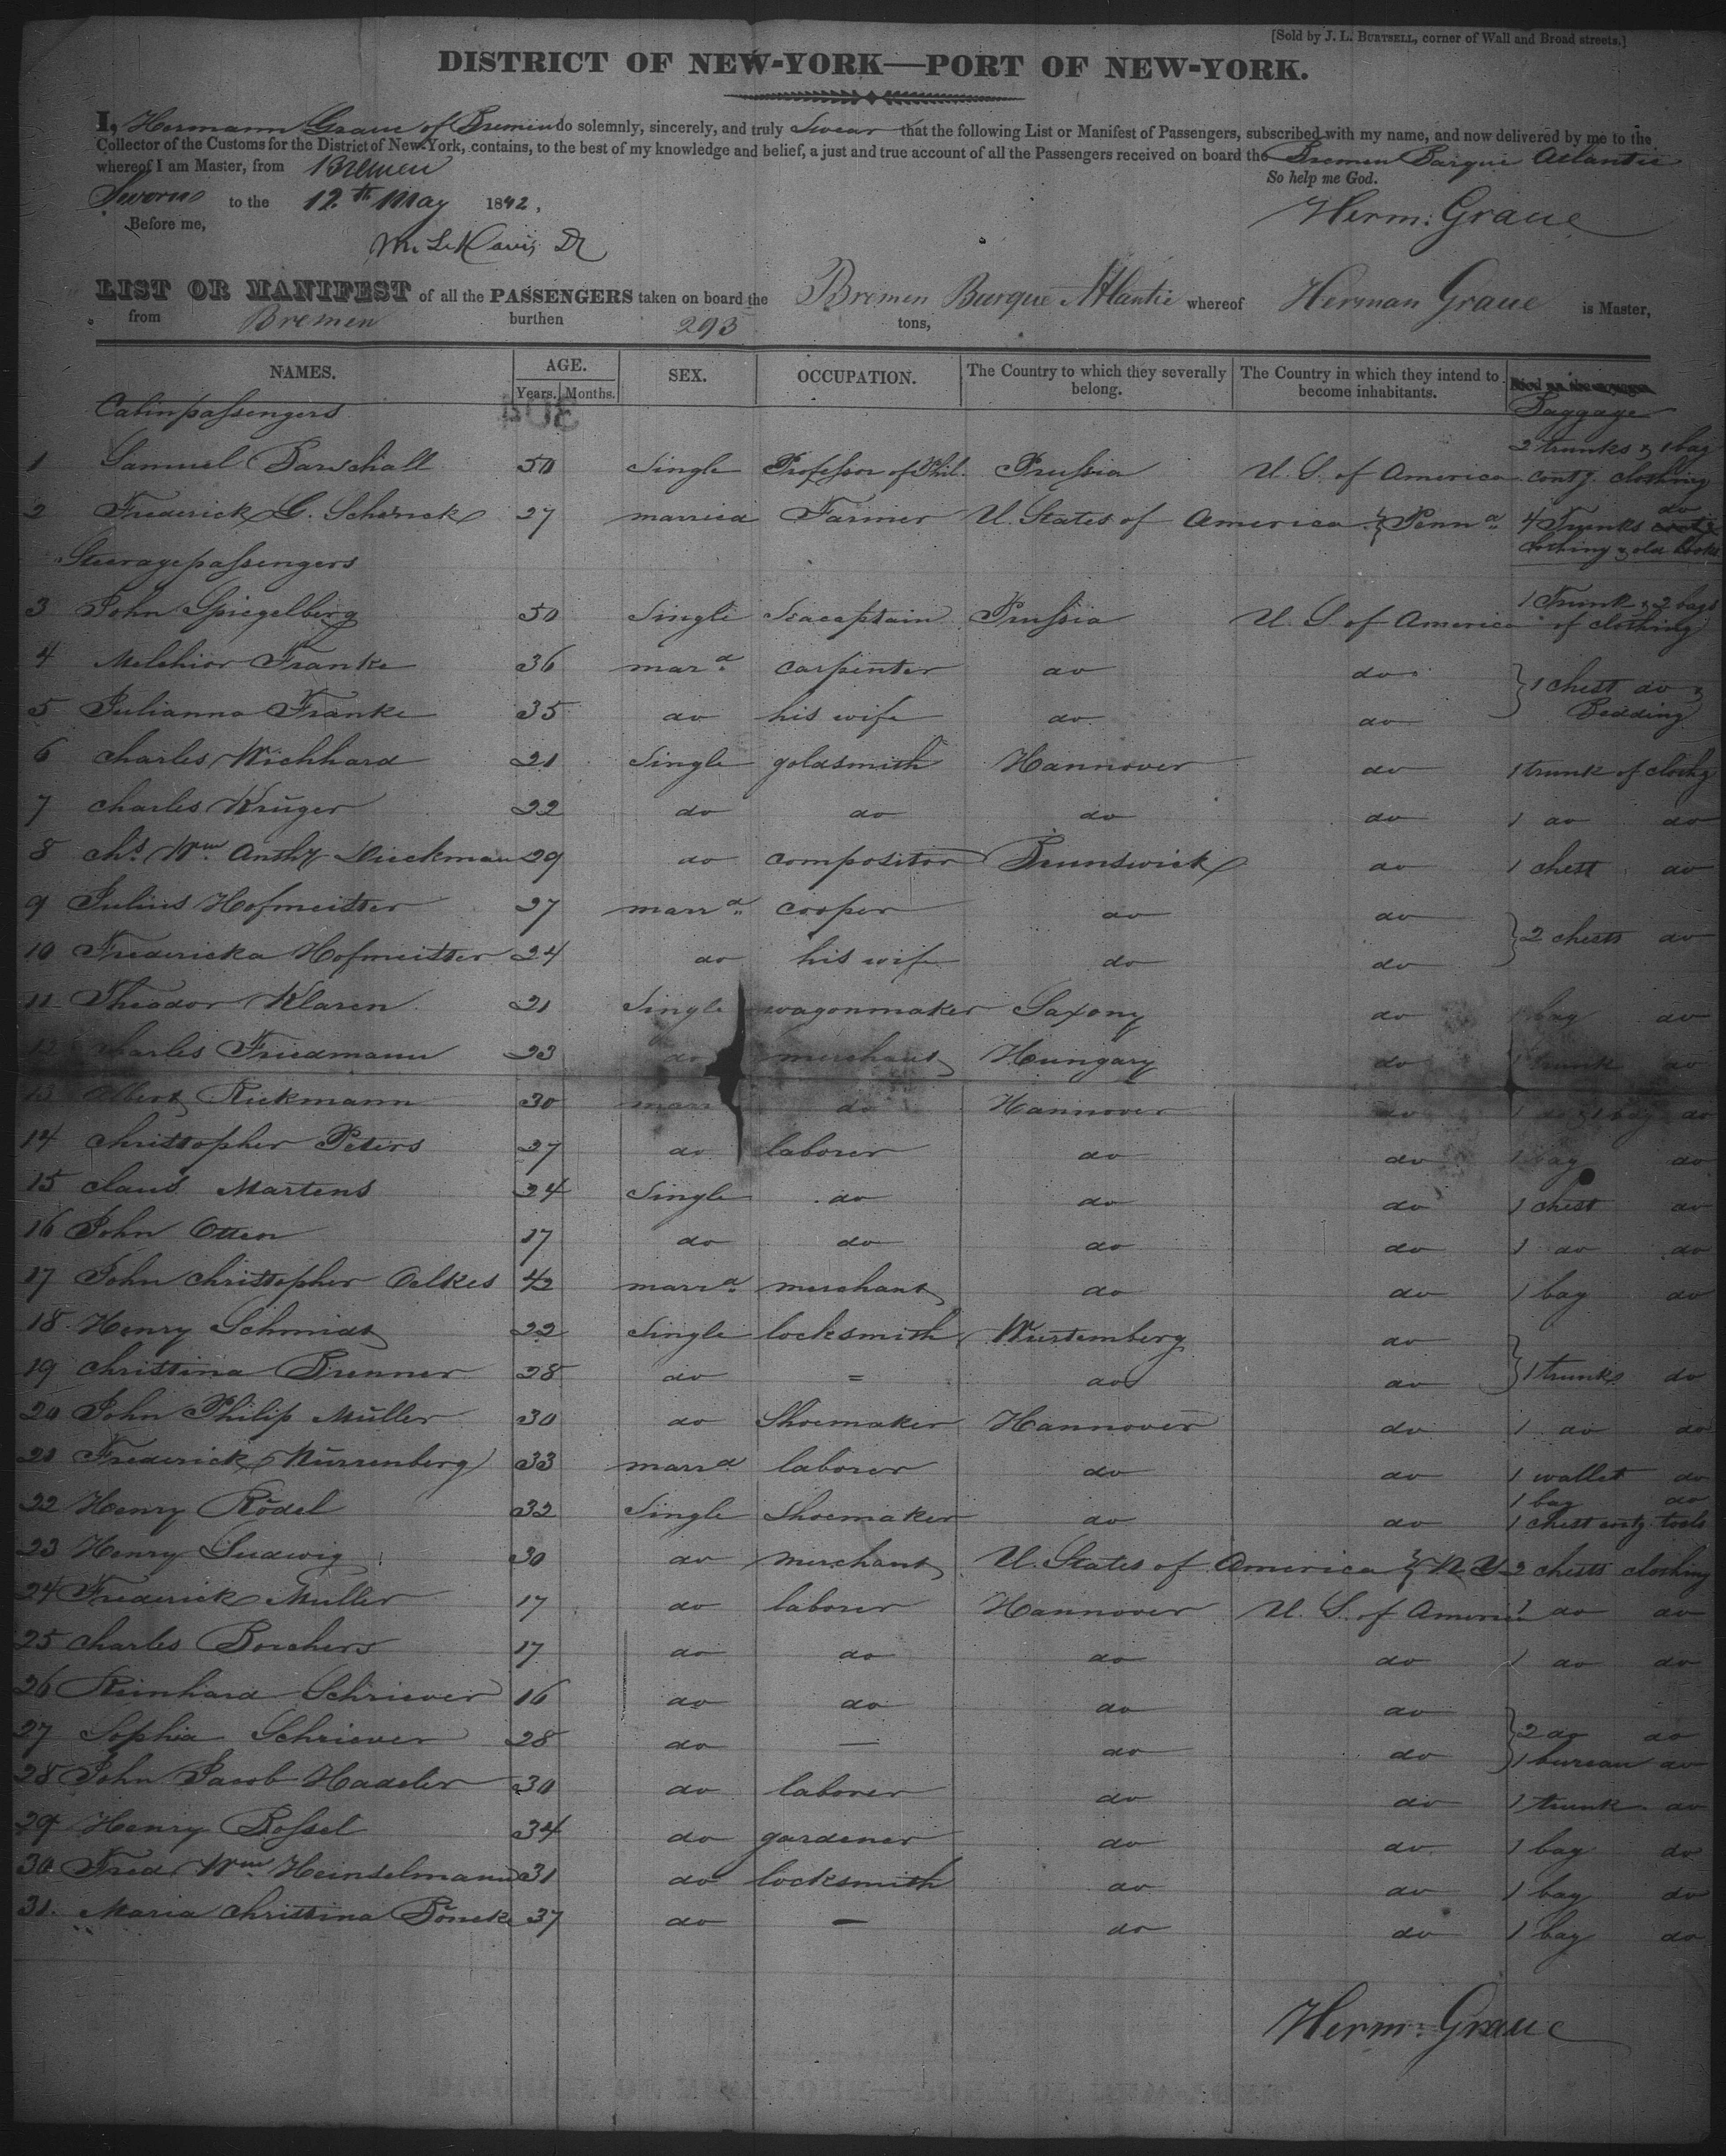 [Sold by J. L. BURTSELL, corner of Wall and Broad streets.]
DISTRICT OF NEW-YORK—PORT OF NEW-YORK.
I, Hermann Graue of Bremen do solemnly, sincerely, and truly Swear that the following List or Manifest of Passengers, subscribed with my name, and now delivered by me to the
Collector of the Customs for the District of New-York, contains, to the best of my knowledge and belief, a just and true account of all the Passengers received on board the Bremen Barque Atlantic
whereof I am Master, from Bremen
So help me God.
Sworn to the 12th May 1842,
Herm: Graue
Before me,
LIST OR MANIFEST of all the PASSENGERS taken on board the Bremen Barque Atlantic whereof Herman Graue is Master,
from Bremen burthen 293 tons,
NAMES. AGE. SEX. OCCUPATION. The Country to which they severally belong. The Country in which they intend to become inhabitants.
Years. Months.
Baggage
Cabin passengers
1 Samuel Barschall 50 Single Professor of Phil. Prussia U. S. of America 2 trunks & 1 bag contg. clothing
2 Frederick G. Schenck 27 married Farmer U. States of America & Penna 4 Trunks do clothing & old books
Steerage passengers
3 John Spiegelberg 50 Single Seacaptain Prussia U. S. of America 1 Trunk & 2 bags of clothing
4 Melchior Franke 36 mard carpenter do do 1 chest do &
5 Julianna Franke 35 do his wife do do Bedding
6 Charles Wichhard 21 Single goldsmith Hannover do 1 trunk of clothg
7 Charles Krüger 22 do do do do 1 do do
8 Chs Wm Anthy Dieckman 29 do compositor Brunswick do 1 chest do
9 Julius Hofmeister 27 marrd cooper do do 2 chests do
10 Fredericka Hofmeister 24 do his wife do do
11 Theodor Klaren 21 Single wagonmaker Saxony do 1 bag do
12 Charles Friedmann 23 do merchant Hungary do 1 trunk do
13 Albert Rickmann 30 marr do Hannover do 1 do & 1 bag do
14 Christopher Peters 27 do laborer do do 1 bag do
15 Claus Martens 24 Single do do do 1 chest do
16 John Otten 17 do do do do 1 do do
17 John Christopher Oelkes 42 marrd merchant do do 1 bag do
18 Henry Schmidt 22 Single locksmith Würtemberg do
19 Christina Brenner 28 do = do do 1 trunk do
20 John Philip Müller 30 do Shoemaker Hannover do 1 do do
21 Frederick Nürrenberg 33 marrd laborer do do 1 wallet do
22 Henry Rödel 32 Single Shoemaker do do 1 bag do 1 chest contg tools
23 Henry Ludwig 30 do merchant U. States of America & N Y 2 chests clothing
24 Frederick Muller 17 do laborer Hannover U. S. of America 1 do do
25 Charles Borchers 17 do do do do 1 do do
26 Reinhard Schriever 16 do do do do 2 do do
27 Sophia Schriever 28 do — do do 1 bureau do
28 John Jacob Hadeler 30 do laborer do do 1 trunk do
29 Henry Rossel 34 do gardener do do 1 bag do
30 Fred Wm Heinselmann 31 do locksmith do do 1 bag do
31. Maria Christina Böneke 37 do — do do 1 bag do
Herm: Graue